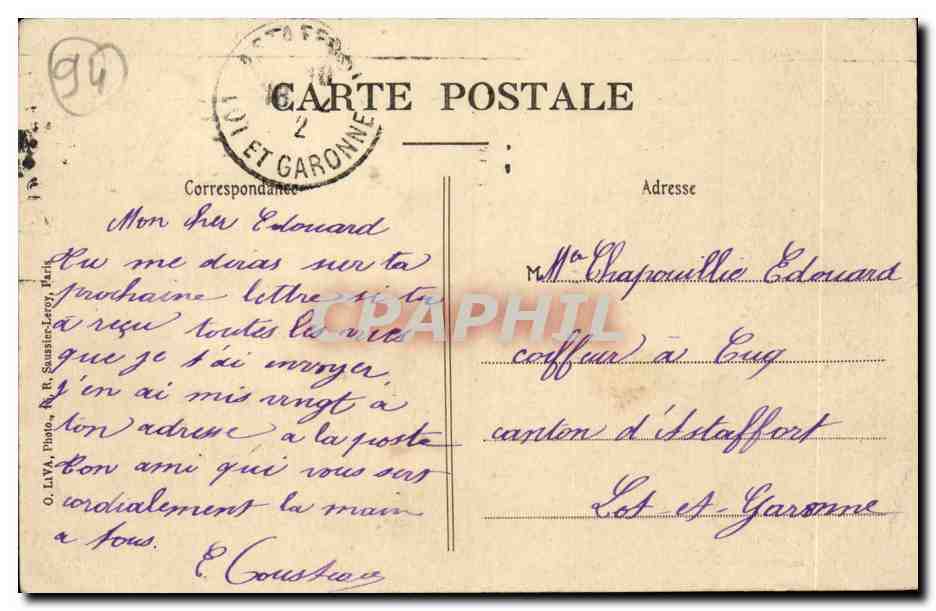 94
ASTAFFORT
LOT ET GARONNE
2
CARTE POSTALE
Correspondance
Adresse
Mon cher Edouard
Tu me diras sur ta
prochaine lettre si tu
à reçu toutes les vues
que je t'ai envoyer
j'en ai mis vingt à
ton adresse a la poste
Ton ami qui vous sert
cordialement la main
a tous.
E.
M Chapouillié Edouard
coiffeur à Cuq
canton d'Astaffort
Lot-et-Garonne
O. LIVA, Photo., R. Saussier-Leroy, Paris
CPAPHIL